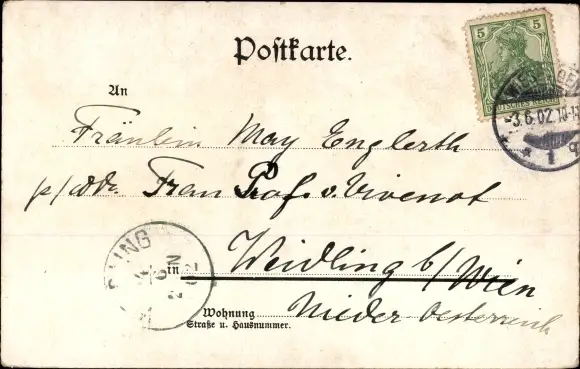 Postkarte.
5 5
DEUTSCHES REICH
-3.6.02.10-1
* 1 q
An
Fräulein May Englerth
p/Adr. Frau Prof. v. Vivenot
in Weidling b/Wien
Wohnung
Straße u. Hausnummer.
Nieder Oesterreich